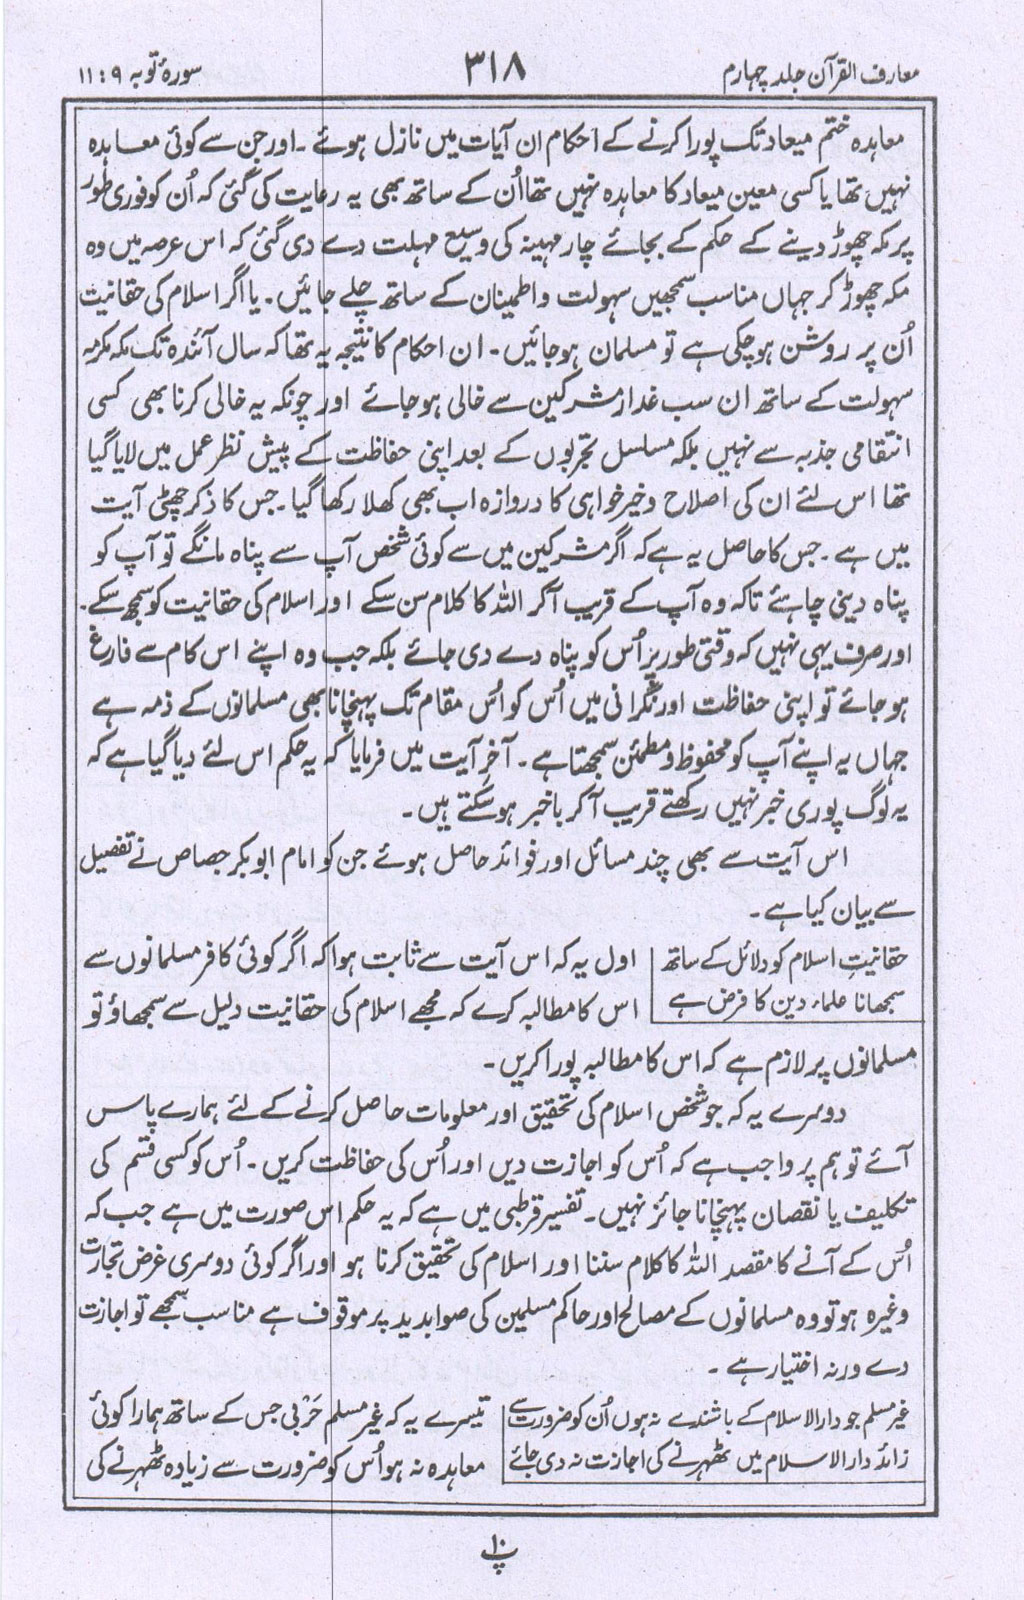 معارف القرآن جلد چہارم
۳۱۸
سورۂ توبہ ۹ : ۱۱
معاہدہ ختم میعاد تک پورا کرنے کے احکام ان آیات میں نازل ہوئے ۔ اور جن سے کوئی معاہدہ
نہیں تھا یا کسی معین میعاد کا معاہدہ نہیں تھا اُن کے ساتھ بھی یہ رعایت کی گئی کہ اُن کو فوری طور
پر مکہ چھوڑ دینے کے حکم کے بجائے چار مہینہ کی وسیع مہلت دے دی گئی کہ اس عرصہ میں وہ
مکہ چھوڑ کر جہاں مناسب سمجھیں سہولت و اطمینان کے ساتھ چلے جائیں ۔ یا اگر اسلام کی حقانیت
اُن پر روشن ہوچکی ہے تو مسلمان ہوجائیں ۔ ان احکام کا نتیجہ یہ تھا کہ سال آئندہ تک مکہ مکرمہ
سہولت کے ساتھ ان سب غدار مشرکین سے خالی ہوجائے اور چونکہ یہ خالی کرنا بھی کسی
انتقامی جذبہ سے نہیں بلکہ مسلسل تجربوں کے بعد اپنی حفاظت کے پیش نظر عمل میں لایا گیا
تھا اس لئے ان کی اصلاح و خیر خواہی کا دروازہ اب بھی کھلا رکھا گیا ۔ جس کا ذکر چھٹی آیت
میں ہے ۔ جس کا حاصل یہ ہے کہ اگر مشرکین میں سے کوئی شخص آپ سے پناہ مانگے تو آپ کو
پناہ دینی چاہئے تاکہ وہ آپ کے قریب آکر اللہ کا کلام سن سکے اور اسلام کی حقانیت کو سمجھ سکے ۔
اور صرف یہی نہیں کہ وقتی طور پر اُس کو پناہ دے دی جائے بلکہ جب وہ اپنے اس کام سے فارغ
ہو جائے تو اپنی حفاظت اور نگرانی میں اُس کو اُس مقام تک پہنچانا بھی مسلمانوں کے ذمہ ہے
جہاں یہ اپنے آپ کو محفوظ و مطمئن سمجھتا ہے ۔ آخرِ آیت میں فرمایا کہ یہ حکم اس لئے دیا گیا ہے کہ
یہ لوگ پوری خبر نہیں رکھتے قریب آکر باخبر ہوسکتے ہیں ۔
اس آیت سے بھی چند مسائل اور فوائد حاصل ہوئے جن کو امام ابوبکر جصاص نے تفصیل
سے بیان کیا ہے ۔
حقانیتِ اسلام کو دلائل کے ساتھ
سمجھانا علماء دین کا فرض ہے
اول یہ کہ اس آیت سے ثابت ہوا کہ اگر کوئی کافر مسلمانوں سے
اس کا مطالبہ کرے کہ مجھے اسلام کی حقانیت دلیل سے سمجھاؤ تو
مسلمانوں پر لازم ہے کہ اس کا مطالبہ پورا کریں ۔
دوسرے یہ کہ جو شخص اسلام کی تحقیق اور معلومات حاصل کرنے کے لئے ہمارے پاس
آئے تو ہم پر واجب ہے کہ اُس کو اجازت دیں اور اُس کی حفاظت کریں ۔ اُس کو کسی قسم کی
تکلیف یا نقصان پہنچانا جائز نہیں ۔ تفسیر قرطبی میں ہے کہ یہ حکم اس صورت میں ہے جب کہ
اُس کے آنے کا مقصد اللہ کا کلام سننا اور اسلام کی تحقیق کرنا ہو اور اگر کوئی دوسری غرض تجارت
وغیرہ ہو تو وہ مسلمانوں کے مصالح اور حاکم مسلمین کی صوابدید پر موقوف ہے مناسب سمجھے تو اجازت
دے ورنہ اختیار ہے ۔
غیر مسلم جو دارالاسلام کے باشندے نہ ہوں اُن کو ضرورت سے
زائد دارالاسلام میں ٹھہرنے کی اجازت نہ دی جائے
تیسرے یہ کہ غیر مسلم حَرْبی جس کے ساتھ ہمارا کوئی
معاہدہ نہ ہو اُس کو ضرورت سے زیادہ ٹھہرنے کی
پ ۱۰